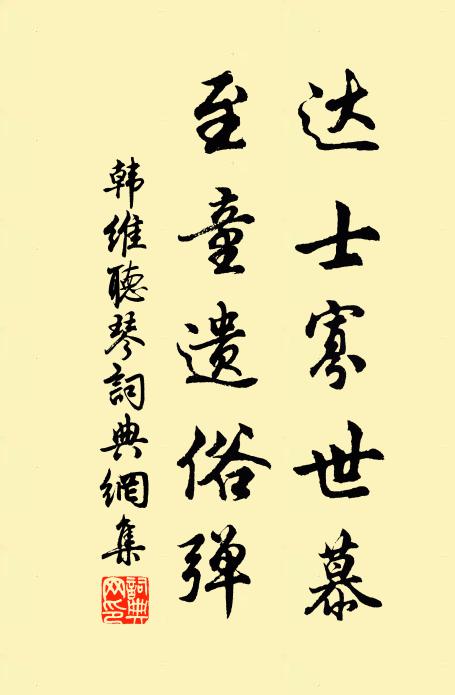 达士寡世慕
至童遗俗弹
韩维聽琴詞典網集
詞典网印